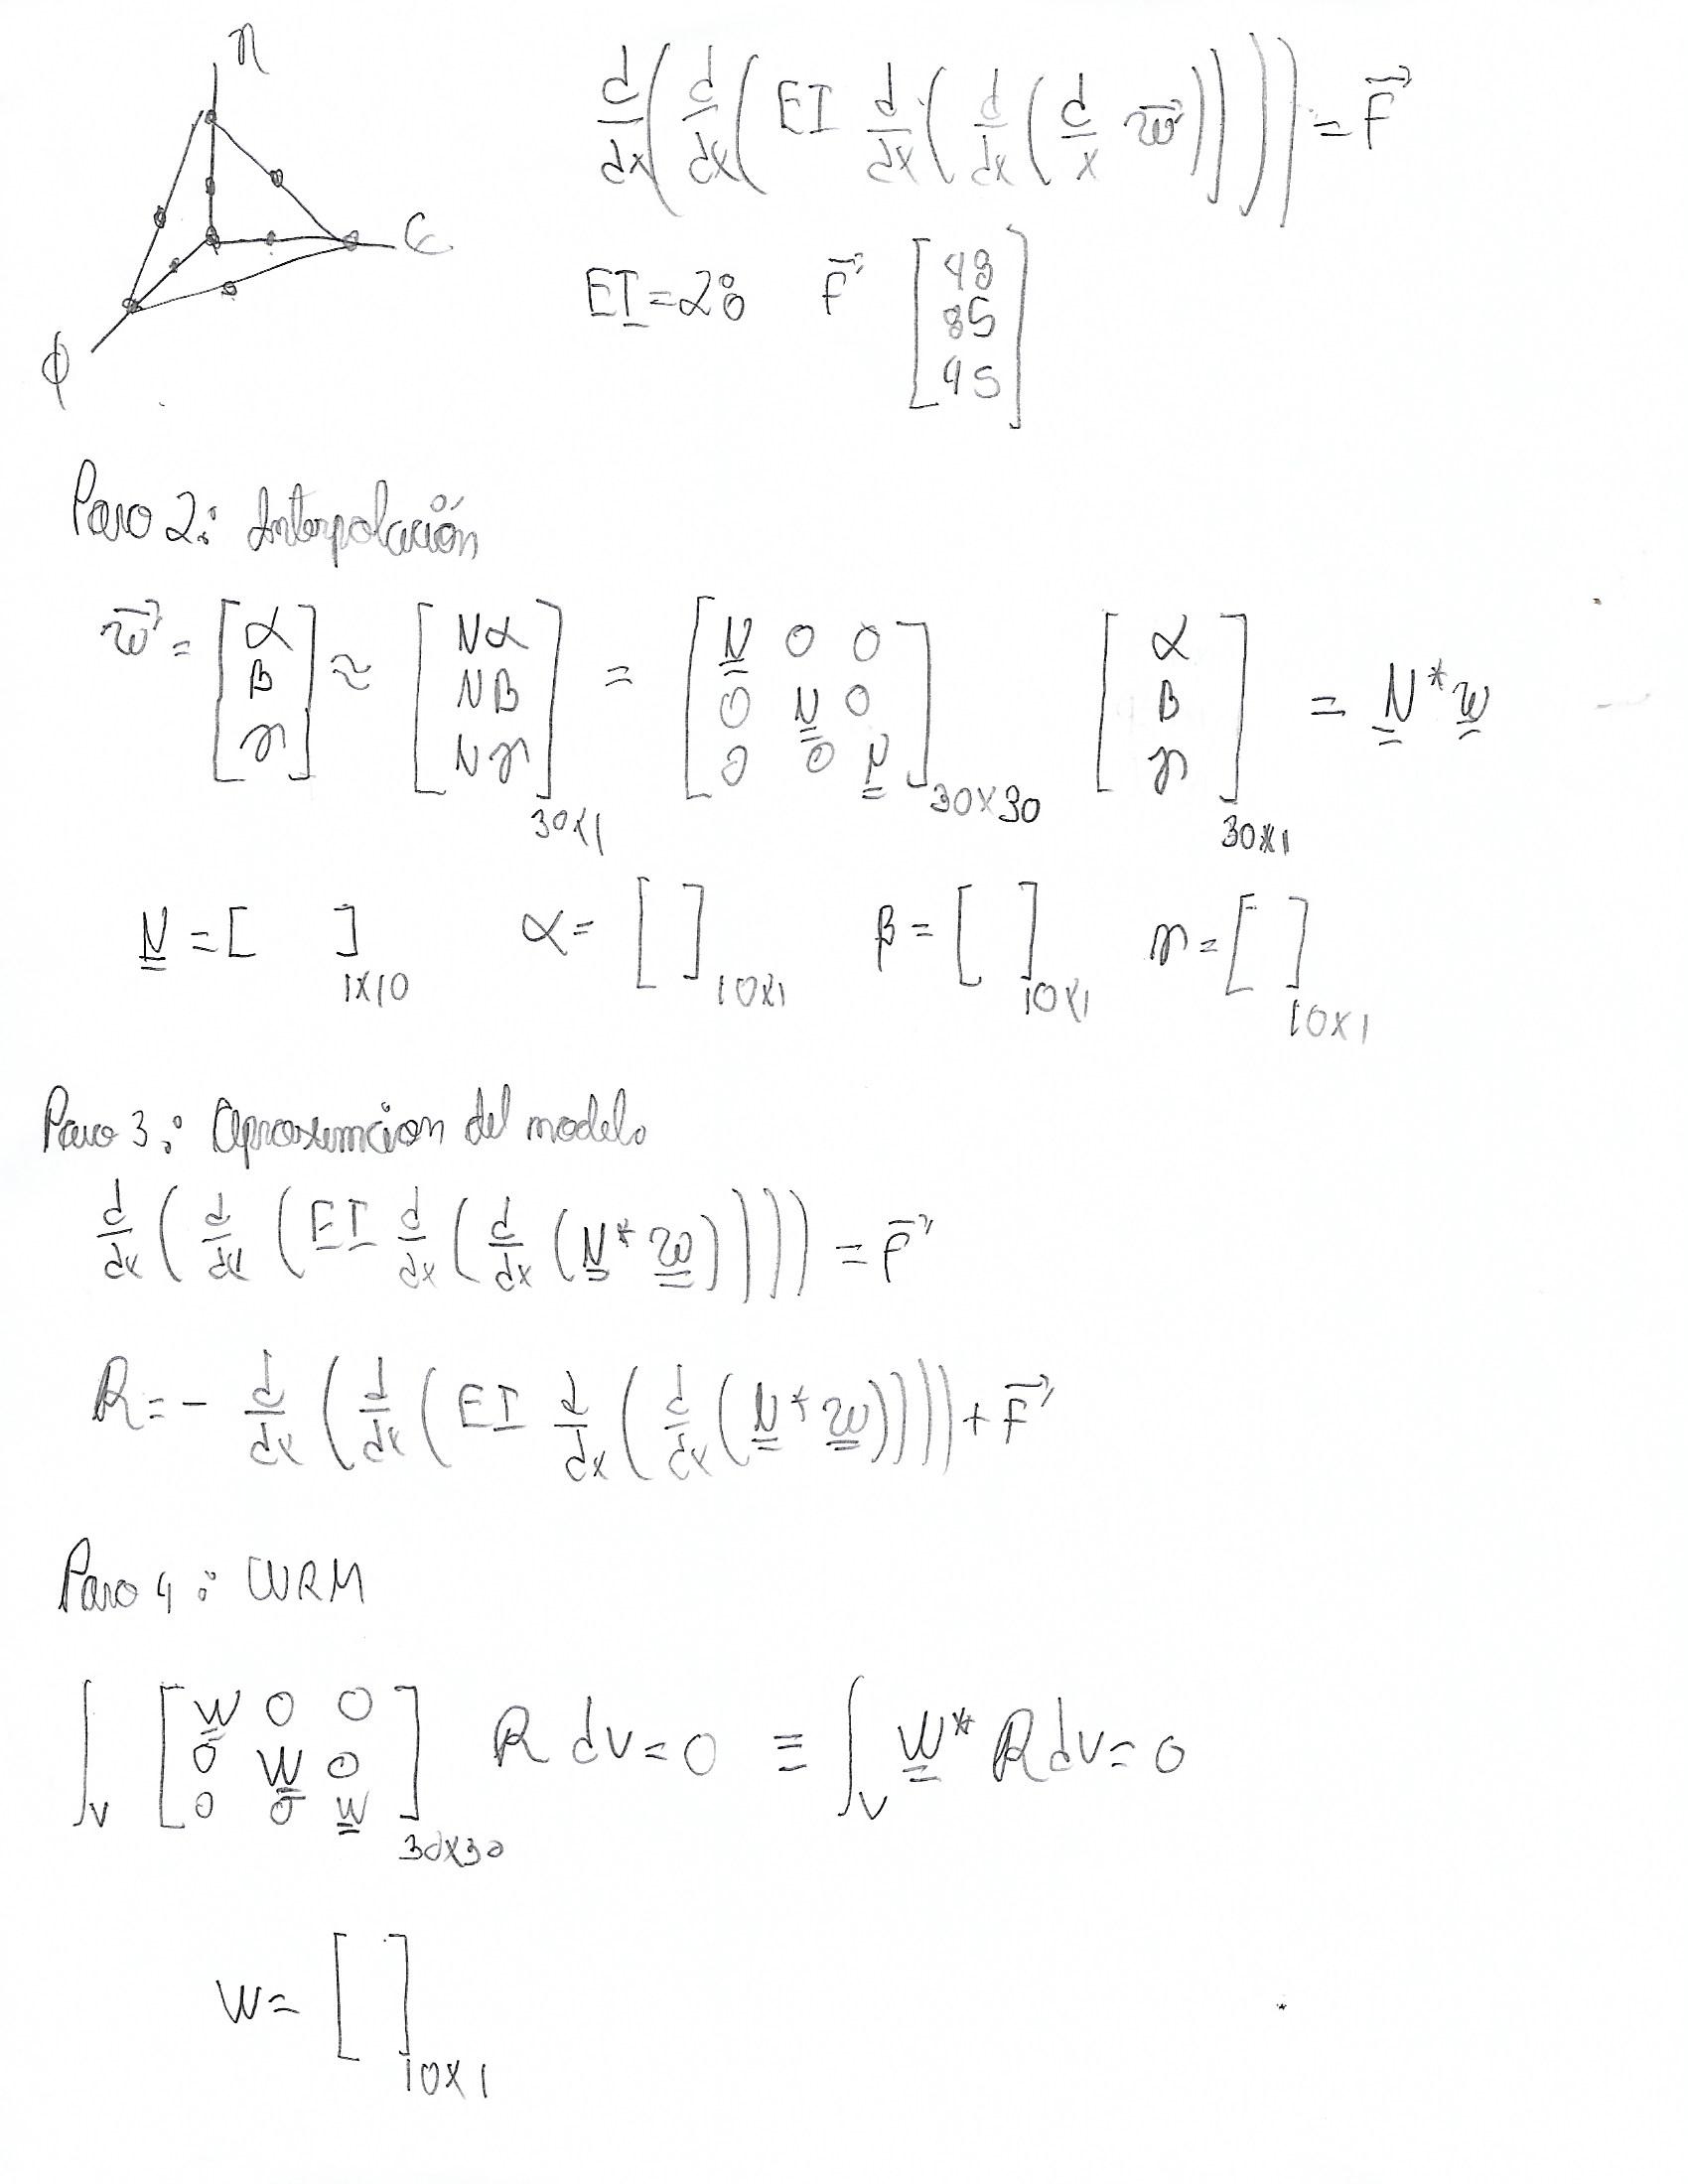 η
ϵ
ϕ
d/dx ( d/dx ( EI d/dx ( d/dx ( d/x w⃗ ) ) ) ) = F⃗
EI = 28 F⃗ [ 48 85 45 ]
Paso 2: Interpolación
w⃗ = [ α β γ ] ≈ [ Nα Nβ Nγ ]30x1 = [ N 0 0 0 N 0 0 0 N ]30x30 [ α β γ ]30x1 = N* w
N = [ ]1x10 α = [ ]10x1 β = [ ]10x1 γ = [ ]10x1
Paso 3: Aproximcion del modelo
d/dx ( d/dx ( EI d/dx ( d/dx ( N* w ) ) ) ) = F⃗
R = - d/dx ( d/dx ( EI d/dx ( d/dx ( N* w ) ) ) ) + F⃗
Paso 4: WRM
∫V [ W 0 0 0 W 0 0 0 W ]30x30 R dV = 0 ≡ ∫V W* R dV = 0
W = [ ]10x1